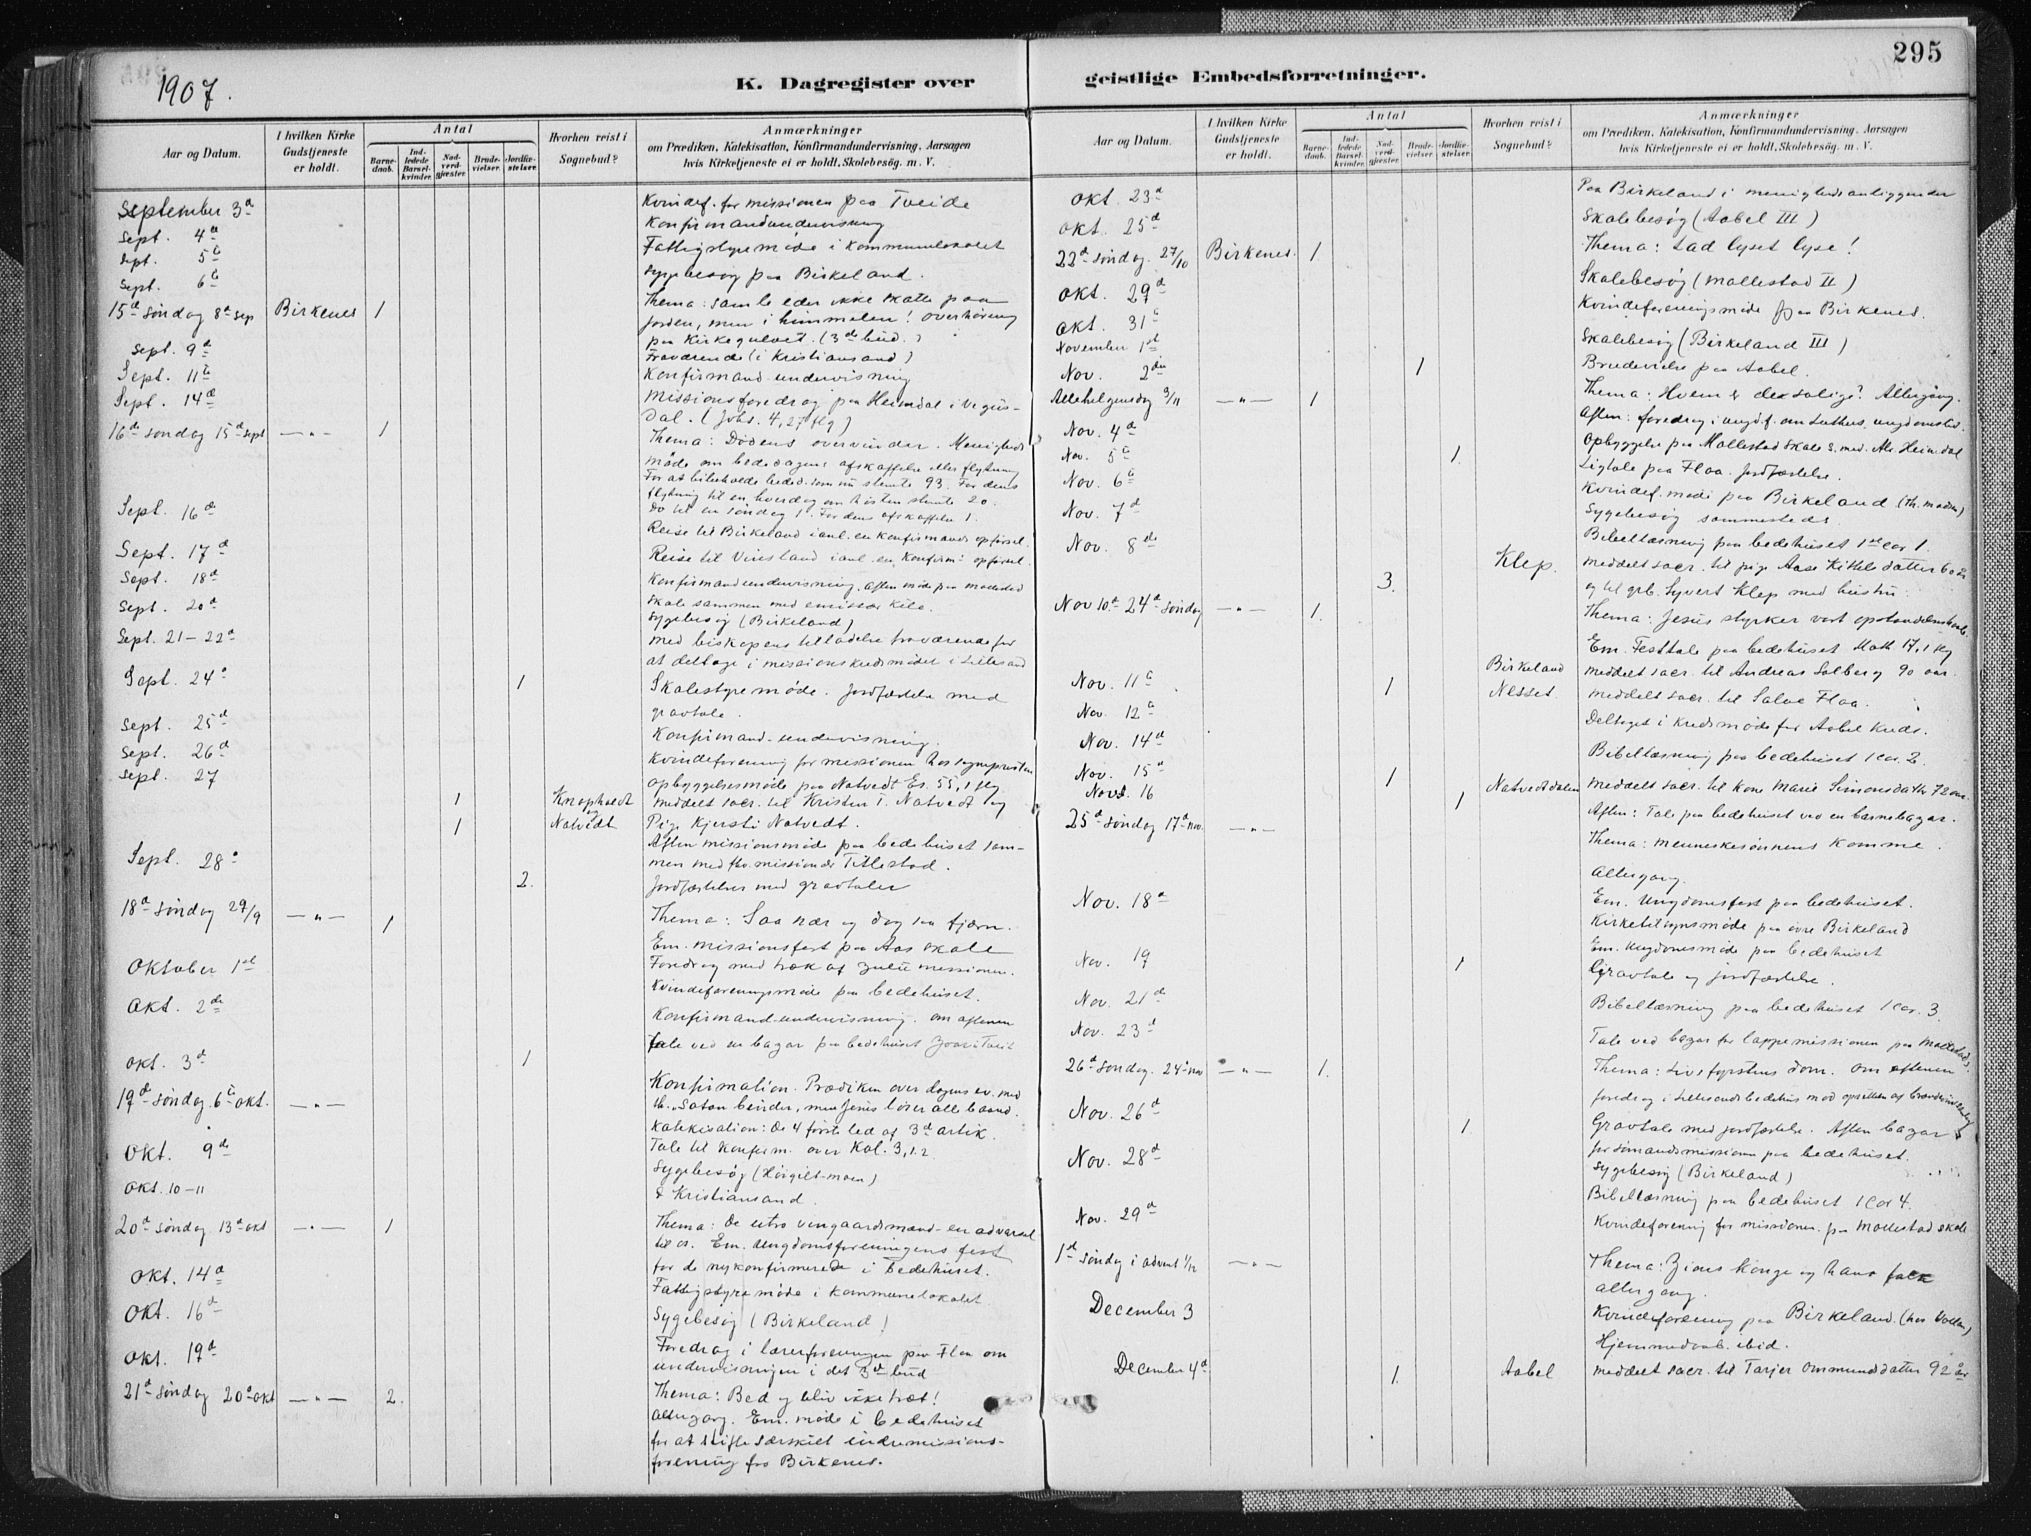 295
1907.
K. Dagregister over
geistlige Embedsforretninger.
Aar og Datum.
I hvilken Kirke Gudstjeneste er holdt.
Antal
Barne-daab.
Ind-ledede Barsel-kvinder.
Nad-verd-gjæster.
Brude-vielser.
Jordfæ-stelser.
Hvorhen reist i Sognebud?
Anmærkninger
om Prædiken, Katekisation, Konfirmandundervisning, Aarsagen
hvis Kirketjeneste ei er holdt, Skolebesög. m. V.
September 3d Kvindef. for missionen paa Tveide
Sept. 4d Konfirmandundervisning
Sept. 5te Fattigstyremöde i Kommunelokalet
Sept. 6te Sygebesög paa Birkeland.
15d Söndag 8d sep Birkenes 1 Thema: Samle eder ikke skatte paa
jorden, men i himmelen! Overhöring
paa Kirkegulvet. (3de bud.)
Sept. 9d Fraværende (i Kristiansand)
Sept. 11te Konfirmand-undervisning
Sept. 14d Missionsforedrag paa Heimdal i Vegus-
dal. (Joh. 4,27 flg)
16d Söndag 15d sept —"— 1 Thema: Dödens overvinder. Menigheds
möde om bededagens afskaffelse eller flytning
For at bibeholde beded. som nu stemte 93. For dens
flytning til en hverdag om hösten stemte 20.
Do til en söndag 1. For dens afskaffelse 1.
Sept. 16d Reise til Birkeland i anl. en Konfirmands opförsel.
Sept. 17d Reise til Vinstland i anl. en Konfirm: opförsel.
Sept. 18d Konfirmandundervisning. Aften möde paa Mollestad
skole sammen med emissær Kile.
Sept. 20d Sygebesög (Birkeland)
Sept. 21-22d Med biskopens tilladelse fraværende for
at deltage i missionskredsmödet i Lillesand
Sept. 24d 1 Skolestyremöde. Jordfæstelse med
gravtale.
Sept. 25d Konfirmand-undervisning.
Sept. 26d Kvindeforening for missionen hos sognepresten
Sept. 27 Opbyggelsesmöde paa Natvedt Es. 55,1 flg.
1 Knaphvedt og meddelt sacr. til Kristen T. Natvedt og
1 Natvedt Pige Kjersti Natvedt.
Sept. 28d Aften missionsmöde paa bedehuset sam-
men med missionær Titlestad.
2. Jordfæstelser med gravtaler
18d Söndag 29/9 —"— 1 Thema: Saa nær og dog saa fjærn.
Em. missionsfest paa Aas skole
Oktober 1ste Foredrag med træk af Zulumissionen.
Kvindeforeningsmöde paa bedehuset.
Okt. 2de Konfirmand-undervisning. Om aftenen
tale ved en bazar paa bedehuset
Okt. 3d 1
19d Söndag 6te Okt. —"— Konfirmation. Prædiken over dagens ev. med
th. „Satan binder, men Jesus löser alle baand.
Katekisation: De 4 förste led af 3d artik.
Tale til Konfirm. over Kol. 3,1.2
Okt. 9de Sygebesög
Okt. 10-11 I Kristiansand.
20d Söndag 13d okt —"— 1 Thema: De utro vingaardsmænd - en advarsel
til os. Em. Ungdomsforeningens fest
for de nykonfirmerede i bedehuset.
Okt. 14d Fattigstyremöde i Kommunelokalet
Okt. 16d Sygebesög (Birkeland)
Okt. 19d Foredrag i lærerforeningen paa Flaa om
undervisningen i det 3de bud
21d Söndag 20d okt —"— 2. Thema: Bed og bliv ikke træt!
Altergang. Em. möde i bedehuset
for at stifte særskilt indremissions-
forening for Birkenes.
Aar og Datum.
I hvilken Kirke Gudstjeneste er holdt.
Antal
Barne-daab.
Ind-ledede Barsel-kvinder.
Nad-verd-gjæster.
Brude-vielser.
Jordfæ-stelser.
Hvorhen reist i Sognebud?
Anmærkninger
om Prædiken, Katekisation, Konfirmandundervisning, Aarsagen
hvis Kirketjeneste ei er holdt, Skolebesög. m. V.
Okt. 23d Paa Birkeland i menighedsanliggender
Okt. 25d Skolebesög (Aabel III)
22d Söndag 27/10 Birkenes. 1. Thema: Lad lyset lyse!
Okt. 29d Skolebesög (Mollestad II)
Okt. 31te Kvindeforeningsmöde paa Birkenes.
November 1st Skolebesög (Birkeland III)
Nov. 2den 1 Brudevielse paa Aabel.
Allehelgensdag 3/11 —"— 1 Thema: Hvem er de salige? Altergang.
Aften: foredrag i ungd.f. om Luthers ungdomstid.
Nov. 4d Opbyggelse paa Mollestad skole s. med. Als Heimdal
Nov. 5te 1. Ligtale paa Flaa. Jordfæstelse.
Nov. 6te Kvindef. möde paa Birkeland (Th. Madsen)
Nov. 7d Sygebesög sammesteds.
Nov. 8de Bibellæsning paa bedehuset 1ste Cor 1.
3. Klep. meddelt sacr. til pige Aase Kittelsdatter 60 år
og til grb. Syvert Klep med hustru.
Nov 10d 24d Söndag —"— 1. Thema: Jesus styrker vort opstandelseshaab.
Em. Festtale paa bedehuset Math 17,1 flg
Nov. 11te 1 Birkeland meddelt sacr. til Andreas Solberg 90 aar.
Nesset. meddelt sacr. til Salve Flaa.
Nov. 12te Deltaget i Kredsmöde for Aabel Kreds.
Nov. 14d Bibellæsning paa bedehuset 1 Cor. 2.
Nov. 15d 1 Natvedtdalen meddelt sacr. til kone Marie Simonsdatter 72 aar.
Nov. 16 1 Aften: Tale paa bedehuset ved en barnebazar.
25d Söndag 17d nov. —"— Thema: Menneskesönnens Komme.
Altergang.
Em. Ungdomsfest paa bedehuset.
Nov. 18d Kirketilsynsmöde paa övre Birkeland
Em. Ungdomsmöde paa bedehuset
Nov. 19 1 Gravtale og jordfæstelse.
Nov. 21d Bibellæsning paa bedehuset 1 Cor. 3.
Nov. 23d Tale ved bazar for lappemissionen paa Mollestad.
26d Söndag. 24d nov —"— 1. Thema: Livsfyrstens dom. Om aftenen
foredrag i Lillesands bedehus
Nov. 26d 1 Gravtale med jordfæstelse. Aften bazar
for sömandsmissionen paa bedehuset.
Nov. 28d Sygebesög (Birkeland)
Bibellæsning paa bedehuset 1 Cor 4.
Nov. 29d Kvindeforening for missionen paa Mollestad skole
1d Söndag i advent 1/12 —"— Thema: Zions Konge og hans folk
altergang.
December 3 Kvindeforening paa Birkeland (hos Vollan)
Hjemmedaab ibid.
December 4d 1. Aabel meddelt sacr. til Tarjer Ommundsdatter 92 år